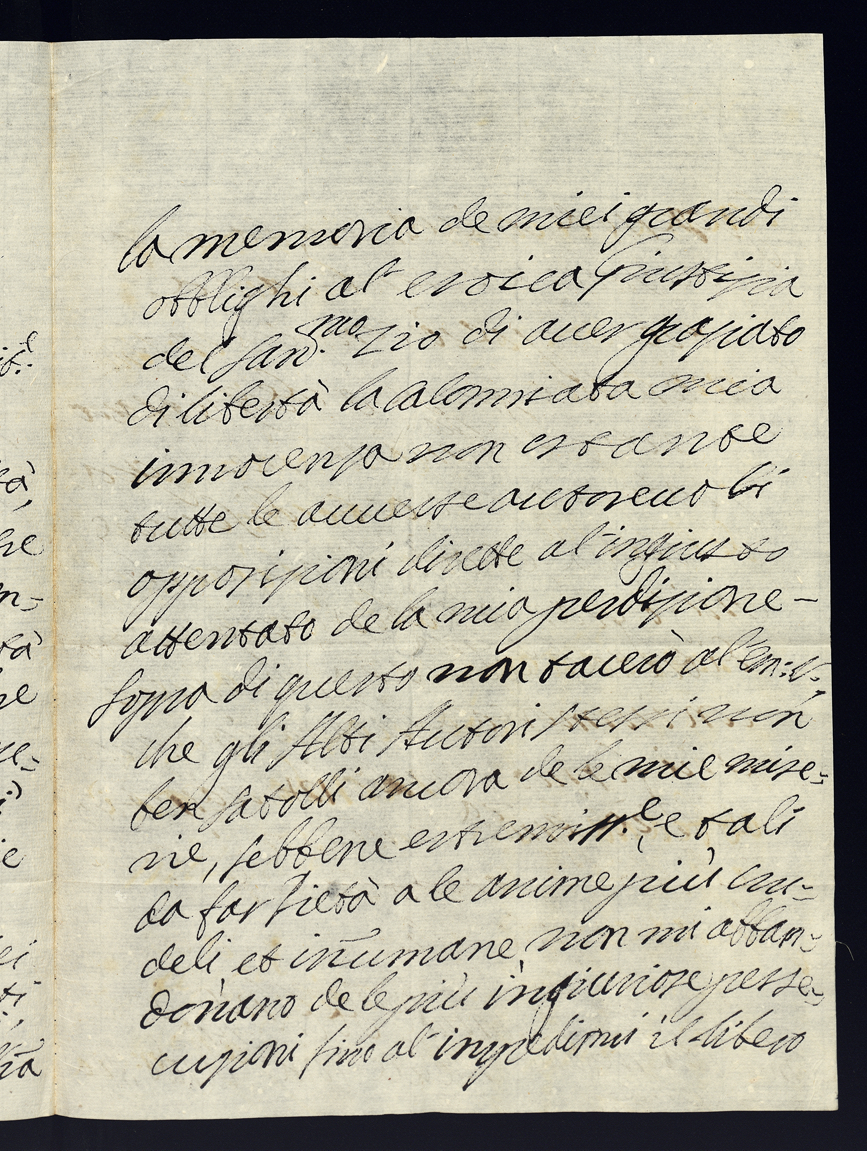 la memoria de miei grandi
obblighi al' eroica Giustizia
del San.mo Zio di aver graziato
di libertà la calonniata mia
innocenza non ostante
tutte le avverse autorevoli
opposizioni dirette al' ingiusto
attentato de la mia perdizione –
Sopra di questo non tacerò al' Em: V:
che gli Alti Autori stessi non
ben satolli ancora de le mie mise-
rie, sebbene estremiss.e, e tali
da far Pietà a le anime più cru-
deli et inumane, non mi abban-
donano de le più ingiuriose perse-
cuzioni fino al' impedirmi il libero